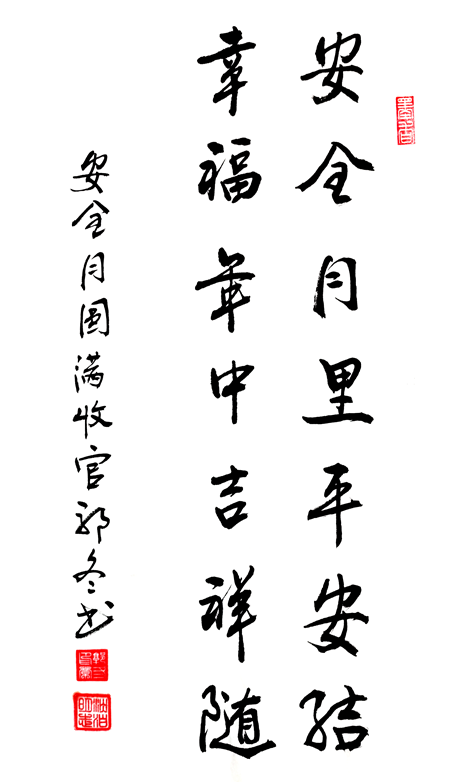 安全月里平安结
幸福年中吉祥随
安全月圆满收官郭冬书